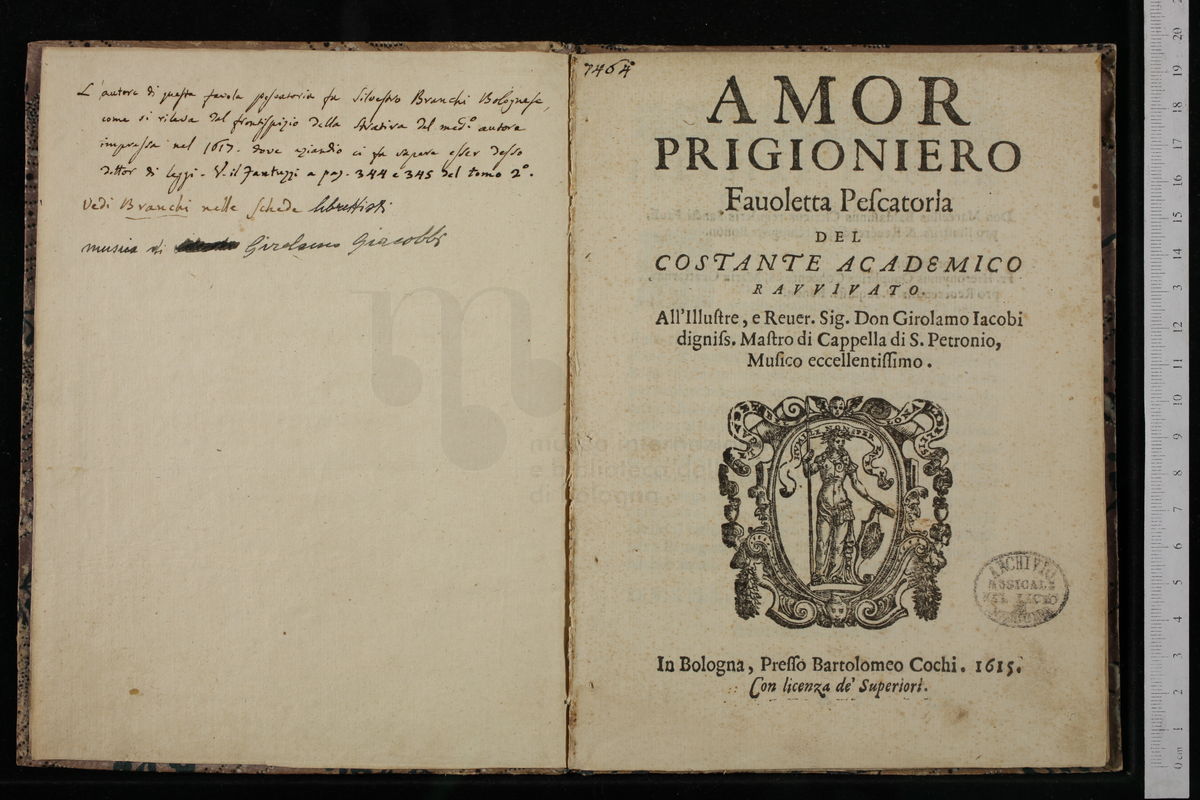 L'autore di questa favola pescatoria fu Silvestro Branchi Bolognese,
come si rileva dal frontispizio della del med.º autore
impressa nel 1617. dove eziandio ci fa sapere esser desso
dottor di leggi. V. il Fantuzzi a pag. 344 e 345 del tomo 2º.
Vedi Branchi nelle schede librettisti
musica di Girolamo Giacobbi
7464
AMOR
PRIGIONIERO
Fauoletta Peſcatoria
DEL
COSTANTE ACADEMICO
RAVVIVATO.
All'Illuſtre, e Reuer. Sig. Don Girolamo Iacobi
digniſs. Maſtro di Cappella di S. Petronio,
Muſico eccellentiſſimo.
NON PER
In Bologna, Preſſo Bartolomeo Cochi. 1615.
Con licenza de' Superiori.
ARCHIVIO
MUSICALE
DEL LICEO
museo internazio
e biblioteca della
di bologna